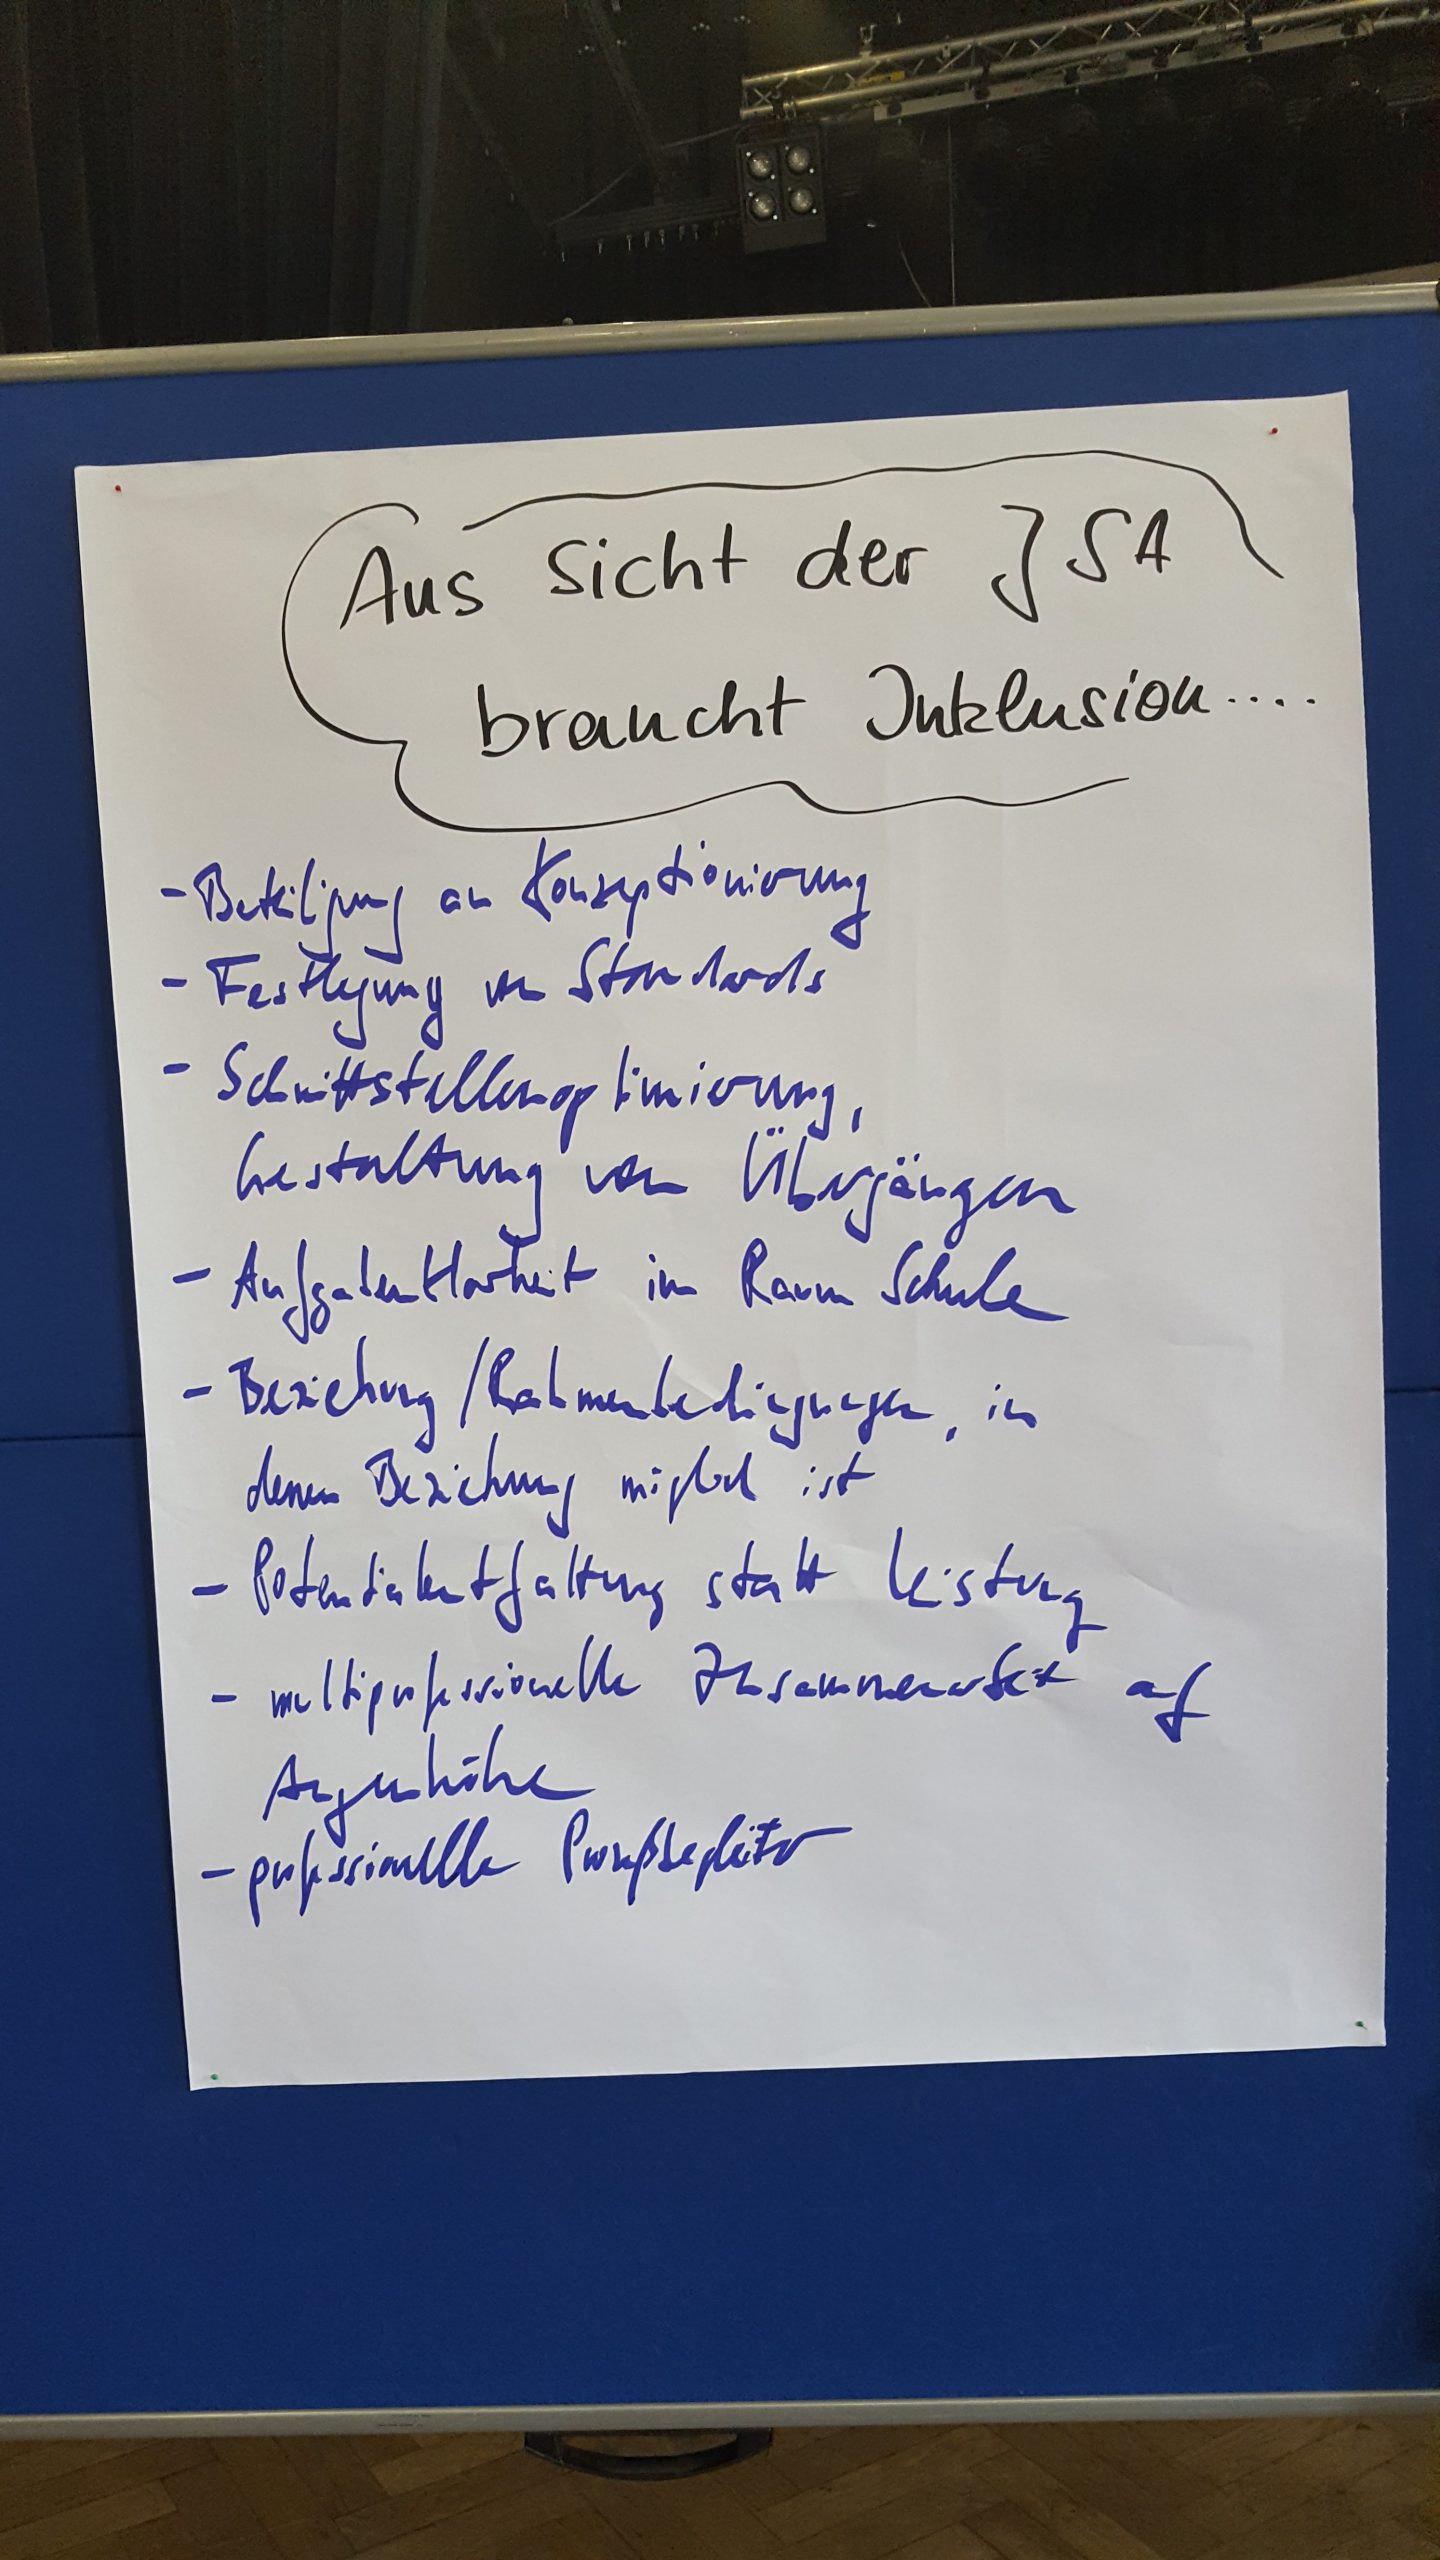 Aus Sicht der JSA
braucht Inklusion....
- Beteiligung an Konzeptionierung
- Festlegung von Standards
- Schnittstellenoptimierung,
Gestaltung von Übergängen
- Aufgabenklarheit im Raum Schule
- Beziehung/Rahmenbedingungen, in
denen Beziehung möglich ist
- Potentialentfaltung statt Leistung
- multiprofessionelle Zusammenarbeit auf
Augenhöhe
- professionelle Prozeßbegleiter